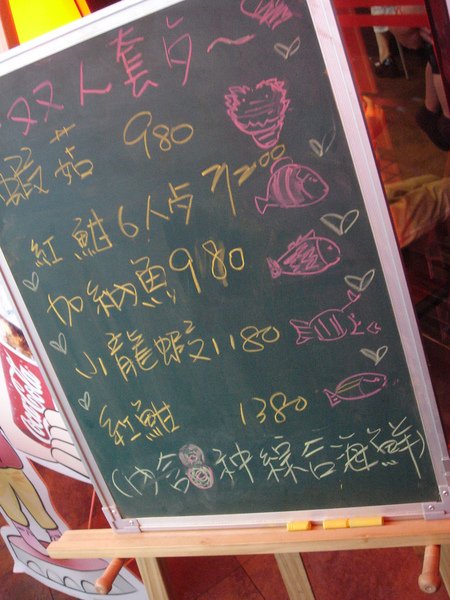 双人套歺~
蝦菇 980
紅魽6人歺7200
加納魚980
小龍蝦1180
紅魽 1380
(內含8种綜合海鮮)
Coca-Cola